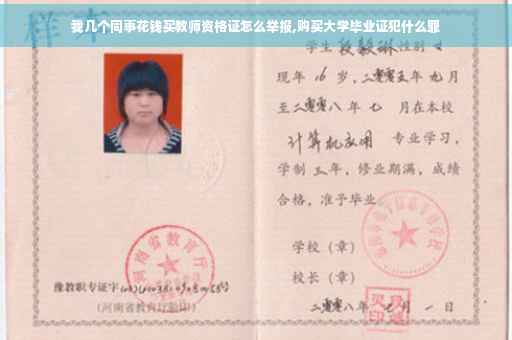 我几个同事花钱买教师资格证怎么举报,购买大学毕业证犯什么罪
样本
学生 段毅琳 性别 女
现年 16 岁，二零零五年 九月
至二零零八年 七 月在本校
计算机应用 专业学习，
学制 三年，修业期满，成绩
合格，准予毕业
学校（章）
校长（章）
二零零八年 七月 一日
河南省教育厅
豫教职专证字
（河南省教育厅验印）